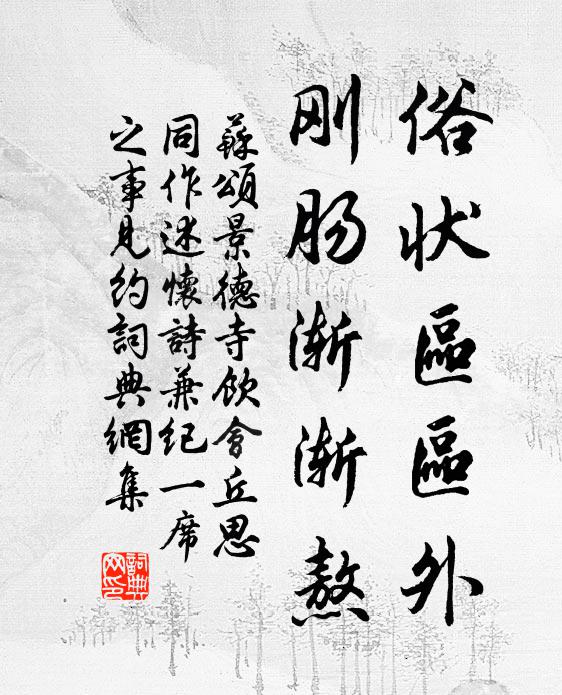 俗状區區外
刚肠渐渐熬
蘇頌景德寺飲會丘思
同作述懷詩兼紀一席
之事見約詞典網集
詞典
网印